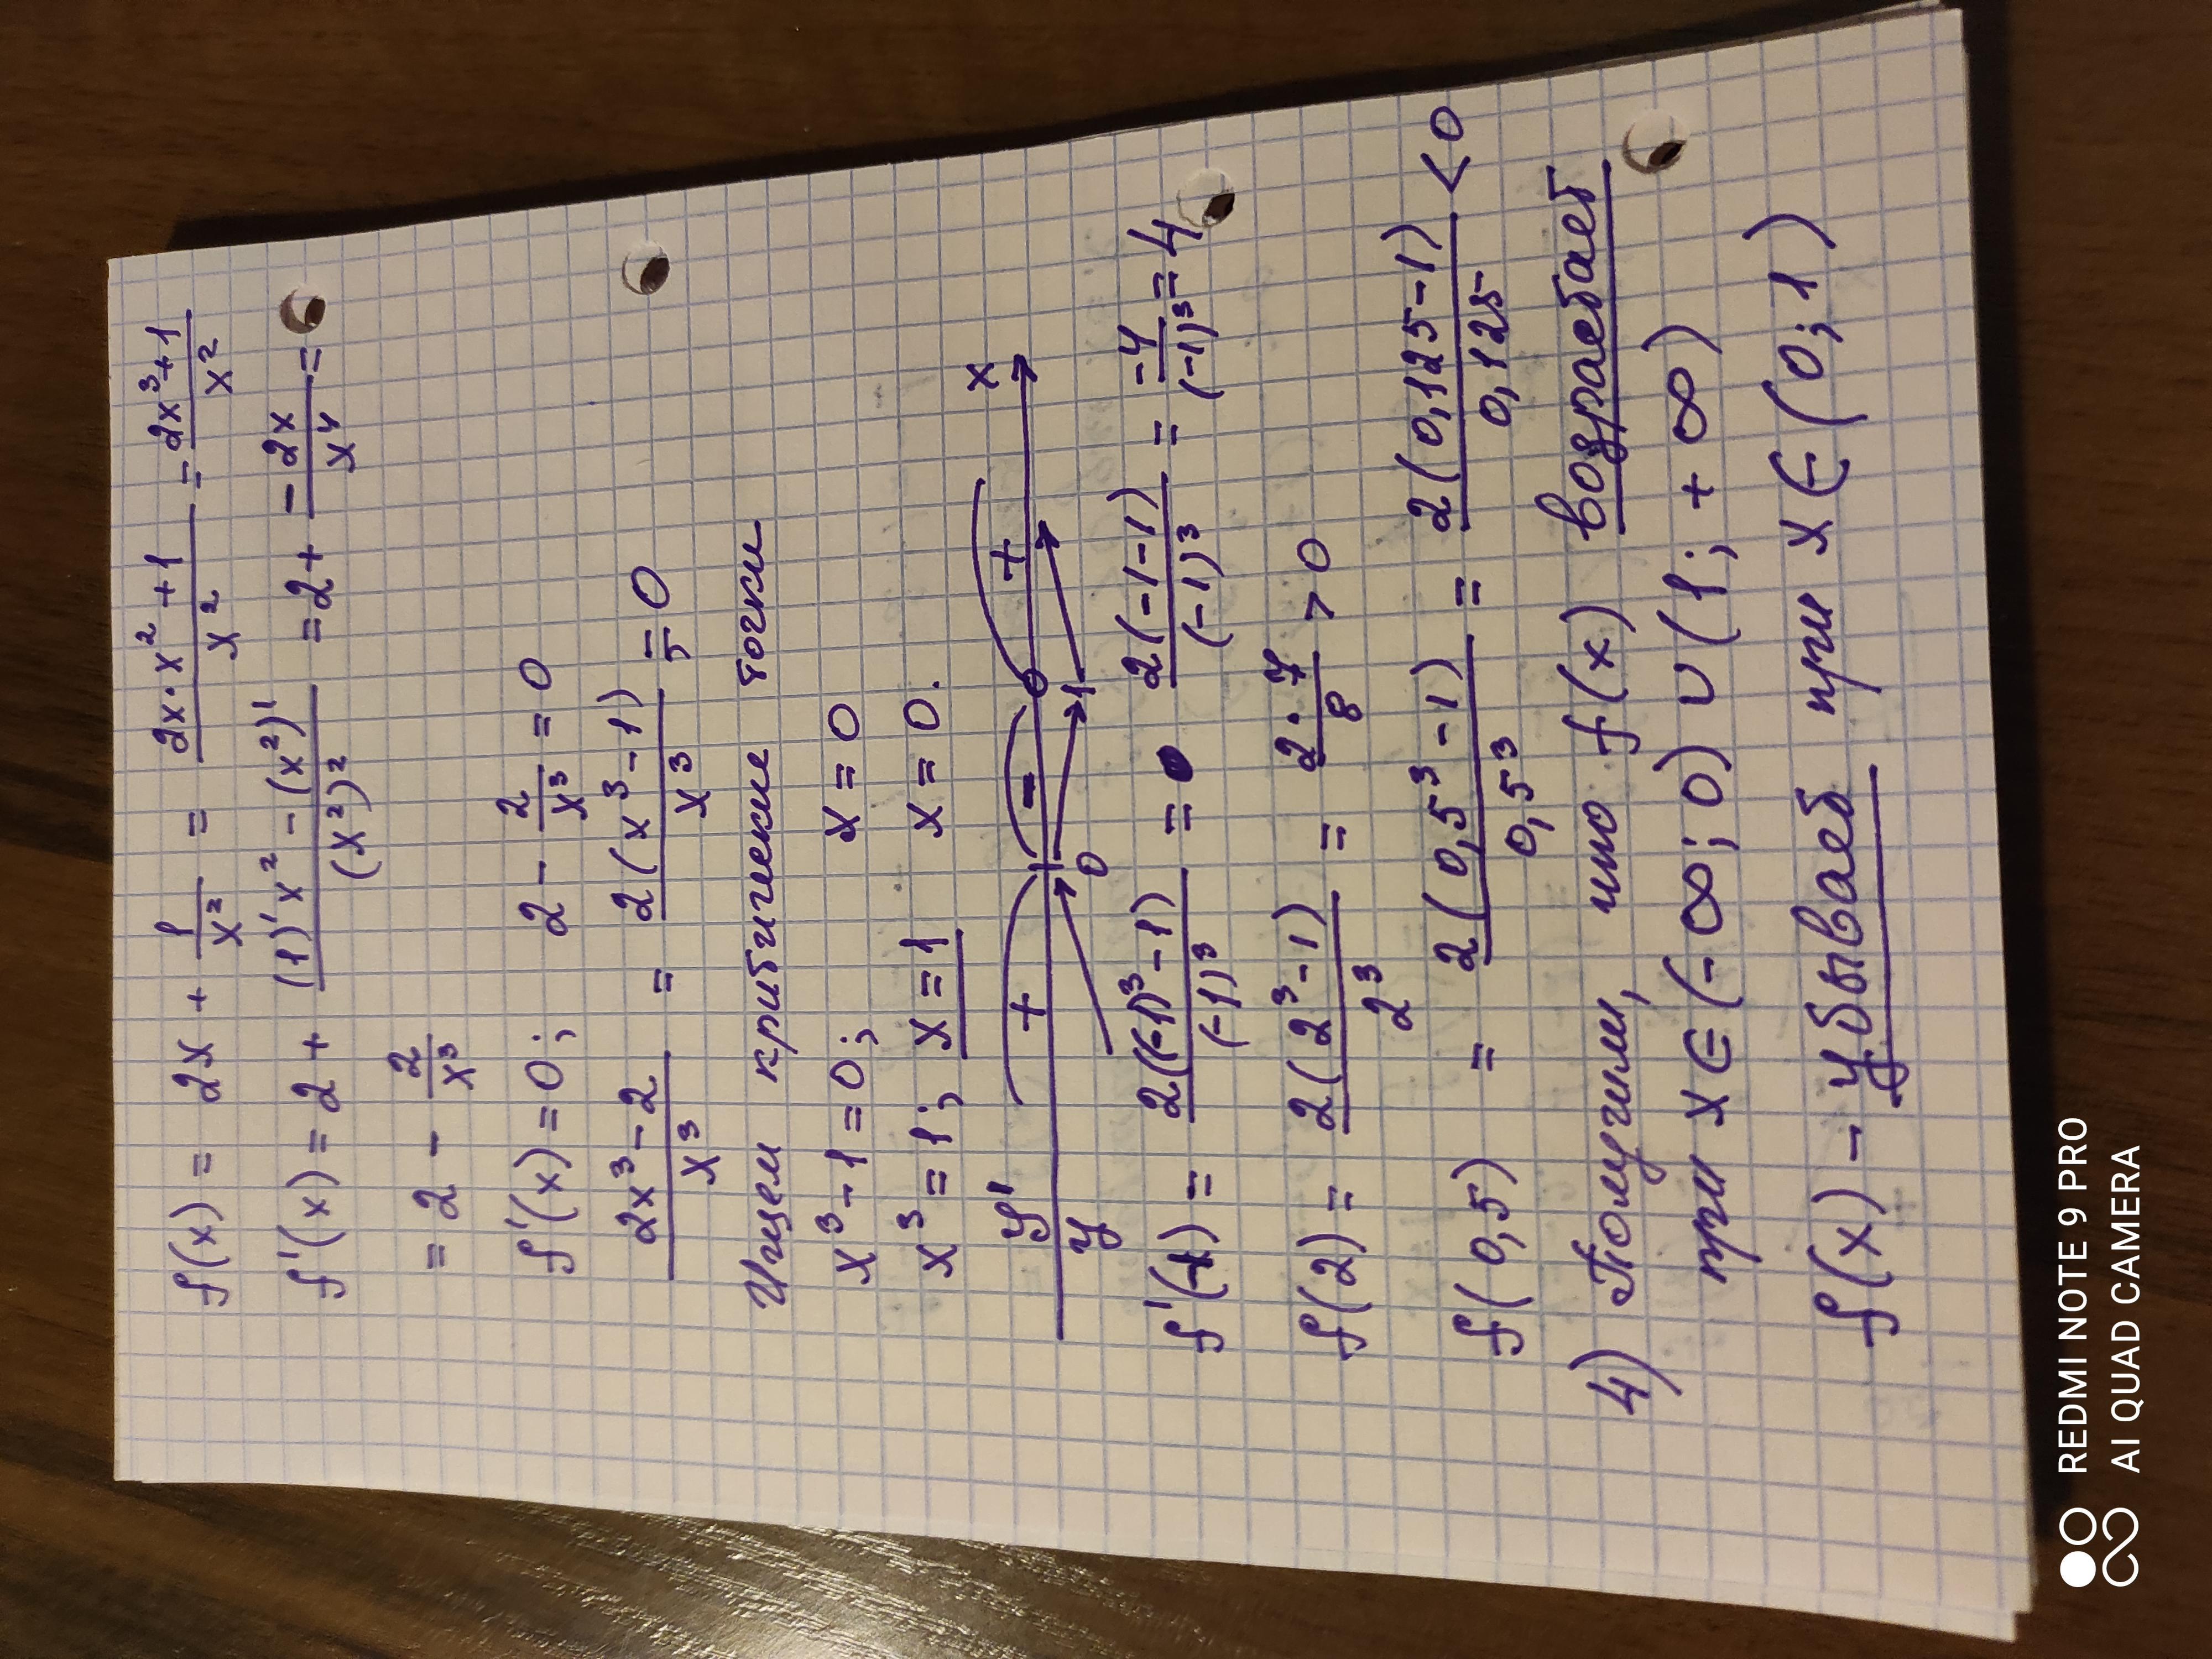 f(x) = 2x + 1/x² = (2x·x²+1)/x² = (2x³+1)/x²
f'(x) = 2 + ((1)'x² - (x²)')/(x²)² = 2 + (-2x)/x⁴ =
= 2 - 2/x³
f'(x) = 0; 2 - 2/x³ = 0
(2x³-2)/x³ = 2(x³-1)/x³ = 0
Ищем критические точки
x³ - 1 = 0; x = 0
x³ = 1; x = 1 x = 0.
y' + - + x
y 0 1
f'(-1) = 2((-1)³-1)/(-1)³ = 2(-1-1)/(-1)³ = -4/(-1)³ = 4
f(2) = 2(2³-1)/2³ = 2·7/8 > 0
f(0,5) = 2(0,5³-1)/0,5³ = 2(0,125-1)/0,125 < 0
4) Получим, что f(x) возрастает
при x ∈ (-∞; 0) ∪ (1; +∞)
f(x) - убывает при x ∈ (0; 1)
REDMI NOTE 9 PRO
AI QUAD CAMERA